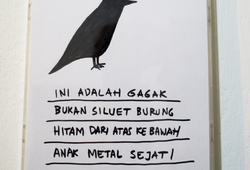 INI ADALAH GAGAK
BUKAN SILUET BURUNG
HITAM DARI ATAS KE BAWAH
ANAK METAL SEJATI